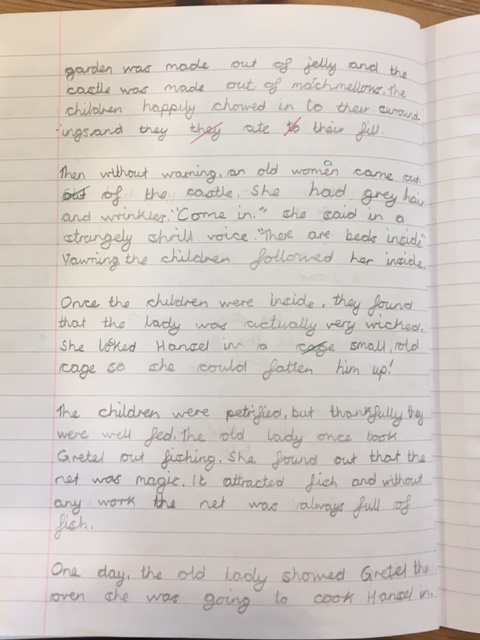 garden was made out of jelly and the
castle was made out of machmellows. The
children happily chowed in to their curround
ings.and they they ate to their fill.
Then without warning, an old women a came out
out of the castle. She had grey hair
and wrinkles. "Come in." she said in a
strangely shrill voice. "There are beds inside"
Yawning the children followed her inside.
Once the children were inside, they found
that the lady was actually very wicked.
She locked Hansel in a cage small, old
cage so she could fatten him up!
The children were petrified, but thankfully they
were well fed. The old lady once took
Gretel out fishing. She found out that the
net was magic. It attracted fish and without
any work the net was always full of
fish.
One day, the old lady showed Gretel the
oven she was going to cook Hansel in.